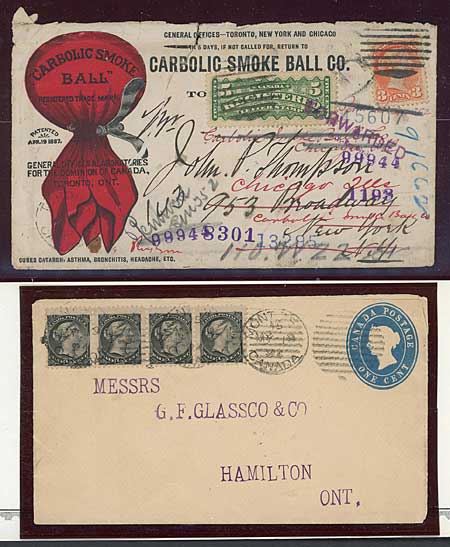 GENERAL OFFICES-TORONTO, NEW YORK AND CHICAGO
IN 5 DAYS, IF NOT CALLED FOR, RETURN TO
CARBOLIC SMOKE BALL CO.
"CARBOLIC SMOKE
BALL"
REGISTERED TRADE MARK
PATENTED
APR. 19 1887.
GENERAL OFFICES & LABORATORIES
FOR THE DOMINION OF CANADA,
TORONTO, ONT.
CURES CATARRH, ASTHMA, BRONCHITIS, HEADACHE, ETC.
TO
5 CANADA 5
REGISTERED
3 CENTS 3
75607
FORWARDED
99944
Mr.
John P. Thompson
Chicago Ills
1193
953 Broadway
Carbolic Smoke Ball Co
New York
99944 8301 13285
CANADA POSTAGE
ONE CENT
CANADA
MESSRS
G.F.GLASSCO & CO
HAMILTON
ONT,